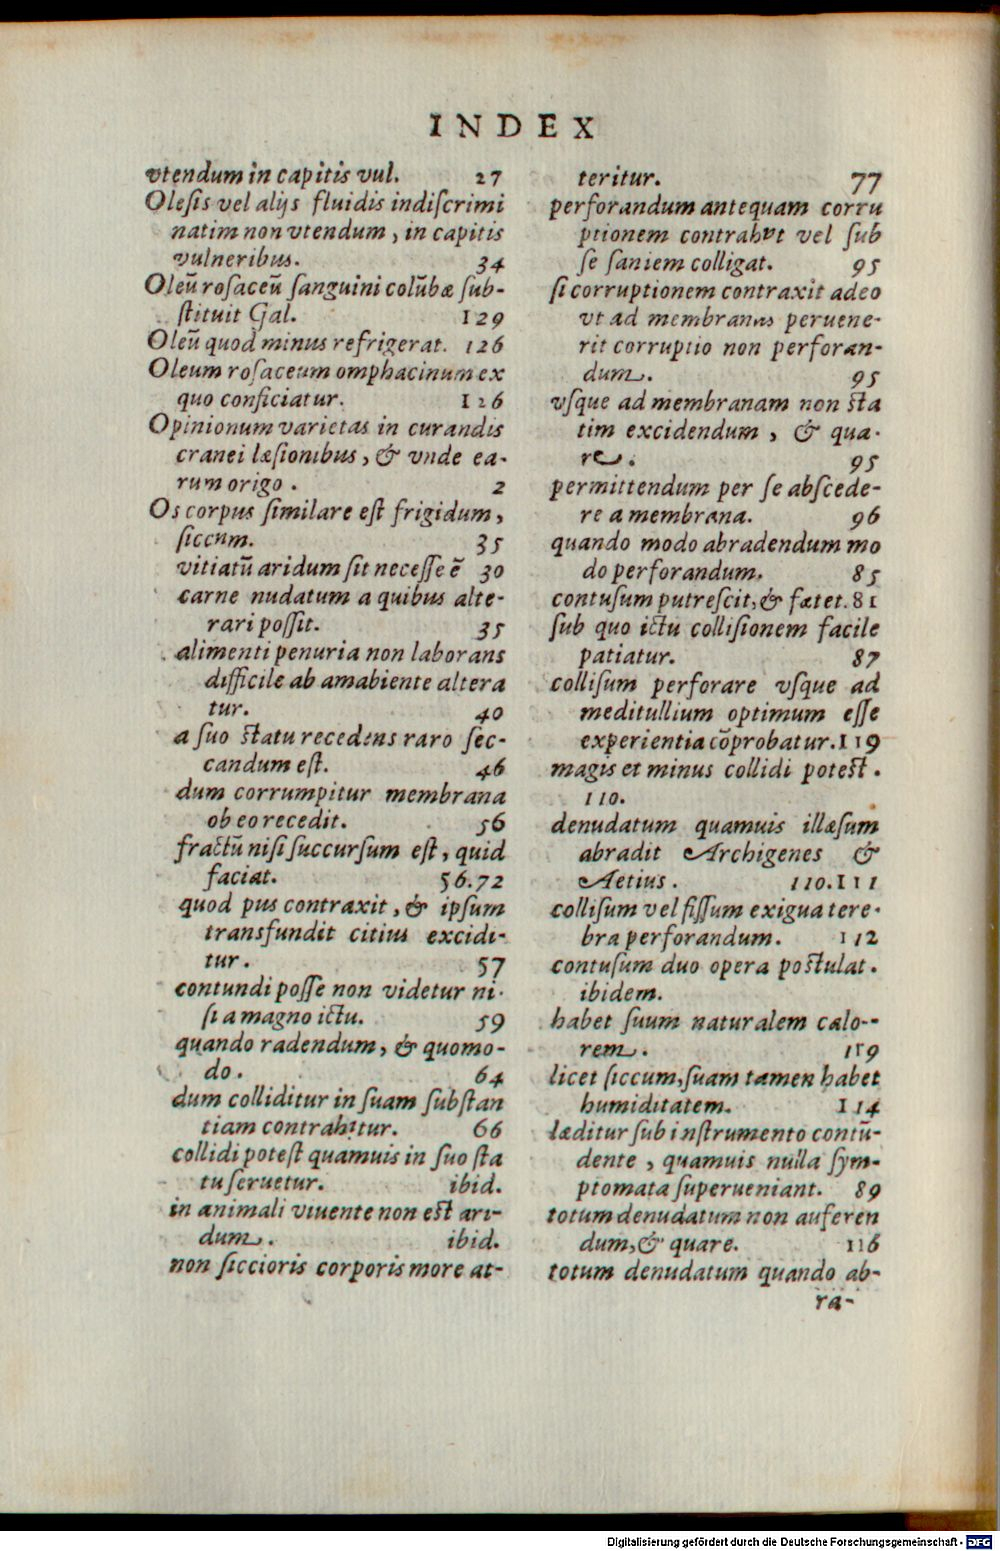 INDEX
vtendum in capitis vul. 27
Olesis vel alijs fluidis indiscrimi
natim non vtendum, in capitis
vulneribus. 34
Oleū rosaceū sanguini colūbæ sub-
stituit Gal. 129
Oleū quod minus refrigerat. 126
Oleum rosaceum omphacinum ex
quo conficiatur. 126
Opinionum varietas in curandis
cranei læsionibus, & vnde ea-
rum origo. 2
Os corpus similare est frigidum,
siccum. 35
vitiatū aridum sit necesse ē 30
carne nudatum a quibus alte-
rari possit. 35
alimenti penuria non laborans
difficile ab amabiente altera
tur. 40
a suo statu recedens raro sec-
candum est. 46
dum corrumpitur membrana
ob eo recedit. 56
fractū nisi succursum est, quid
faciat. 56.72
quod pus contraxit, & ipsum
transfundit citius excidi-
tur. 57
contundi posse non videtur ni-
si a magno ictu. 59
quando radendum, & quomo-
do. 64
dum colliditur in suam substan
tiam contrahitur. 66
collidi potest quamuis in suo sta
tu seruetur. ibid.
in animali viuente non est ari-
dum. ibid.
non siccioris corporis more at-
teritur. 77
perforandum antequam corru
ptionem contrahut vel sub
se saniem colligat. 95
si corruptionem contraxit adeo
vt ad membranas peruene-
rit corruptio non perforan-
dum. 95
vsque ad membranam non sta
tim excidendum, & qua-
re. 95
permittendum per se abscede-
re a membrana. 96
quando modo abradendum mo
do perforandum. 85
contusum putrescit, & fætet. 81
sub quo ictu collisionem facile
patiatur. 87
collisum perforare vsque ad
meditullium optimum esse
experientia cōprobatur. 119
magis et minus collidi potest.
110.
denudatum quamuis illæsum
abradit Archigenes &
Aetius. 110.111
collisum vel fissum exigua tere-
bra perforandum. 112
contusum duo opera postulat.
ibidem.
habet suum naturalem calo--
rem. 119
licet siccum, suam tamen habet
humiditatem. 114
læditur sub instrumento contū-
dente, quamuis nulla sym-
ptomata superueniant. 89
totum denudatum non auferen
dum, & quare. 116
totum denudatum quando ab-
ra-
Digitalisierung gefördert durch die Deutsche Forschungsgemeinschaft - DFG